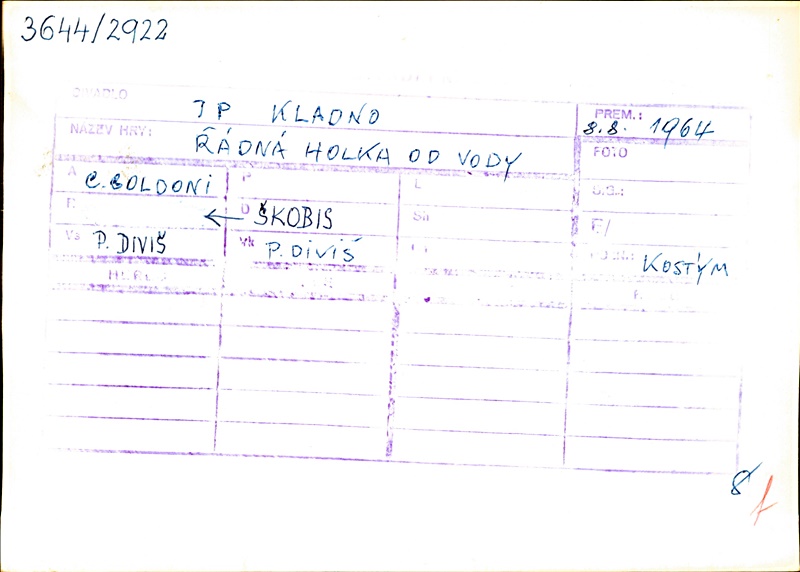 3644/2922
DIVADLO JP KLADNO PREM.: 8.8. 1964
NÁZEV HRY: ŘÁDNÁ HOLKA OD VODY FOTO
A C. GOLDONI P L
R ← D ŠKOBIS Sh F/
Vs P. DIVIŠ Vk P. DIVIŠ KOSTÝM
8